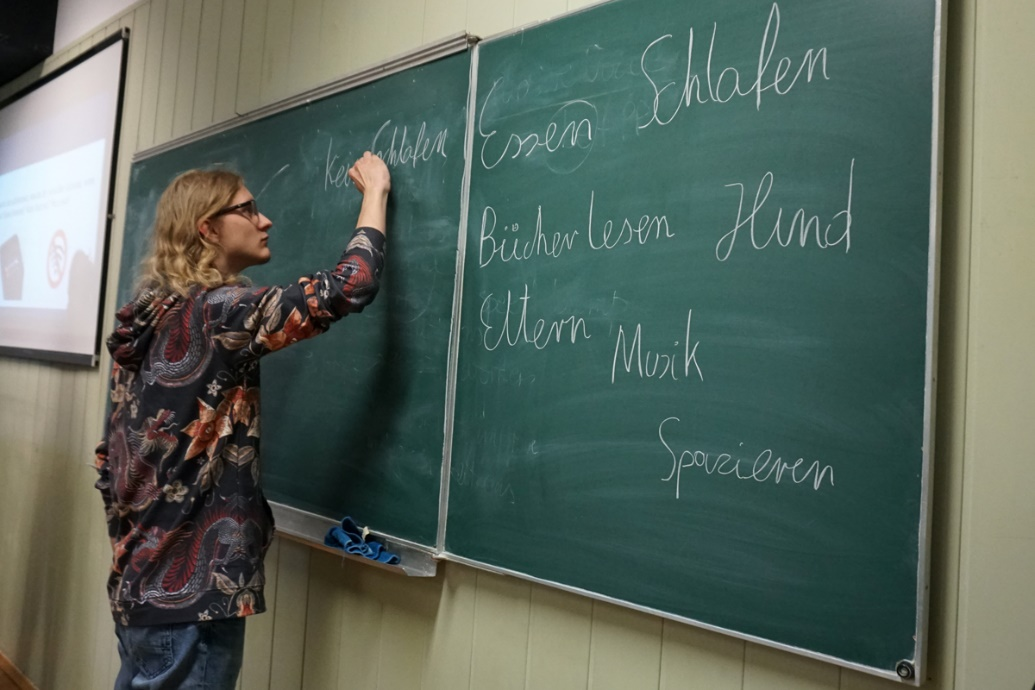 Kein Schlafen
Essen Schlafen
Bücher lesen Hund
Eltern
Musik
Spazieren